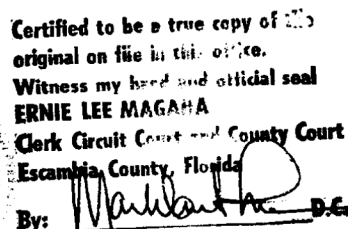 Certified to be a true copy of the
original on file in this office.
Witness my hand and official seal
ERNIE LEE MAGAHA
Clerk Circuit Court and County Court
Escambia County, Florida
By: D.C.